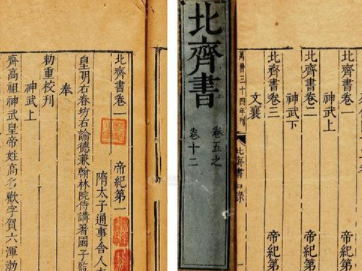 北齊書卷一　帝紀第一
隋太子通事舍人李
皇明右春坊右諭德兼翰林院侍講署國子監
奉
勅重校刊
神武上
齊高祖神武皇帝姓高名歡字賀六渾勃
北齊書
卷五之
卷十二
萬曆三十四年刊
北齊書目錄
北齊書卷一　帝紀第
神武上
北齊書卷二　帝紀第
神武下
北齊書卷三　帝紀第
文襄